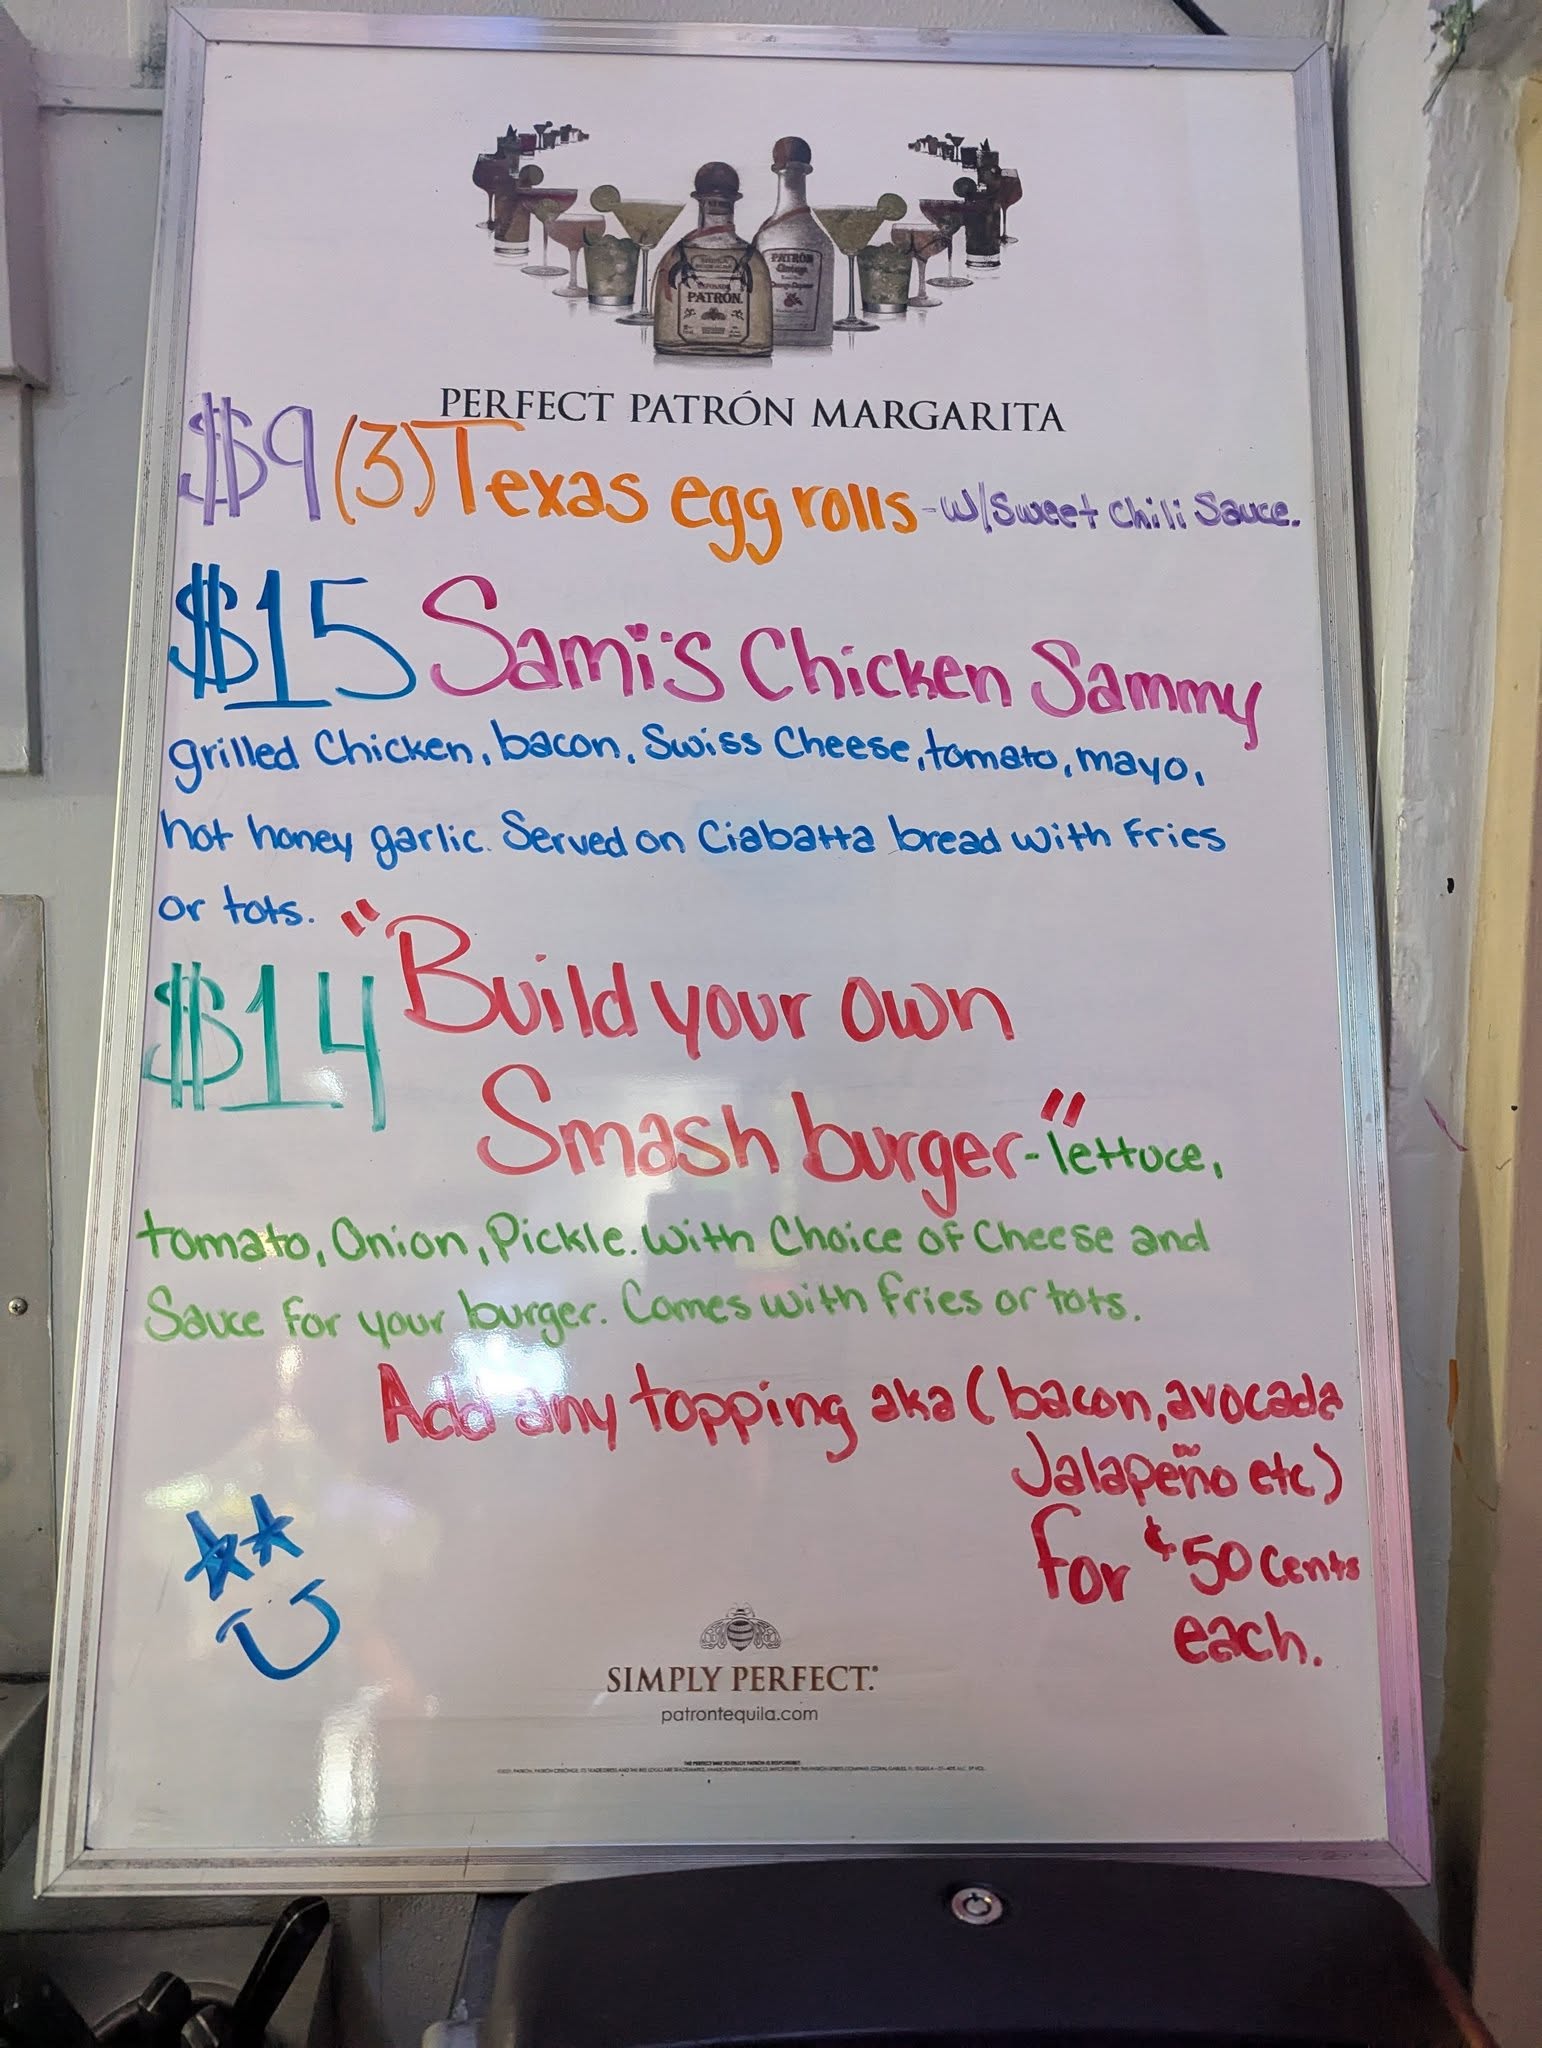 PATRÓN
PATRÓN
PERFECT PATRÓN MARGARITA
$9 (3) Texas egg rolls - w/ Sweet Chili Sauce.
$15 Sami's Chicken Sammy
grilled Chicken, bacon, Swiss Cheese, tomato, mayo,
hot honey garlic. Served on Ciabatta bread with fries
or tots.
$14 "Build your own
Smash burger-" lettuce,
tomato, Onion, Pickle. With Choice of Cheese and
Sauce for your burger. Comes with fries or tots.
Add any topping aka (bacon, avocado
Jalapeño etc)
for ¢50 cents
each.
SIMPLY PERFECT.
patrontequila.com